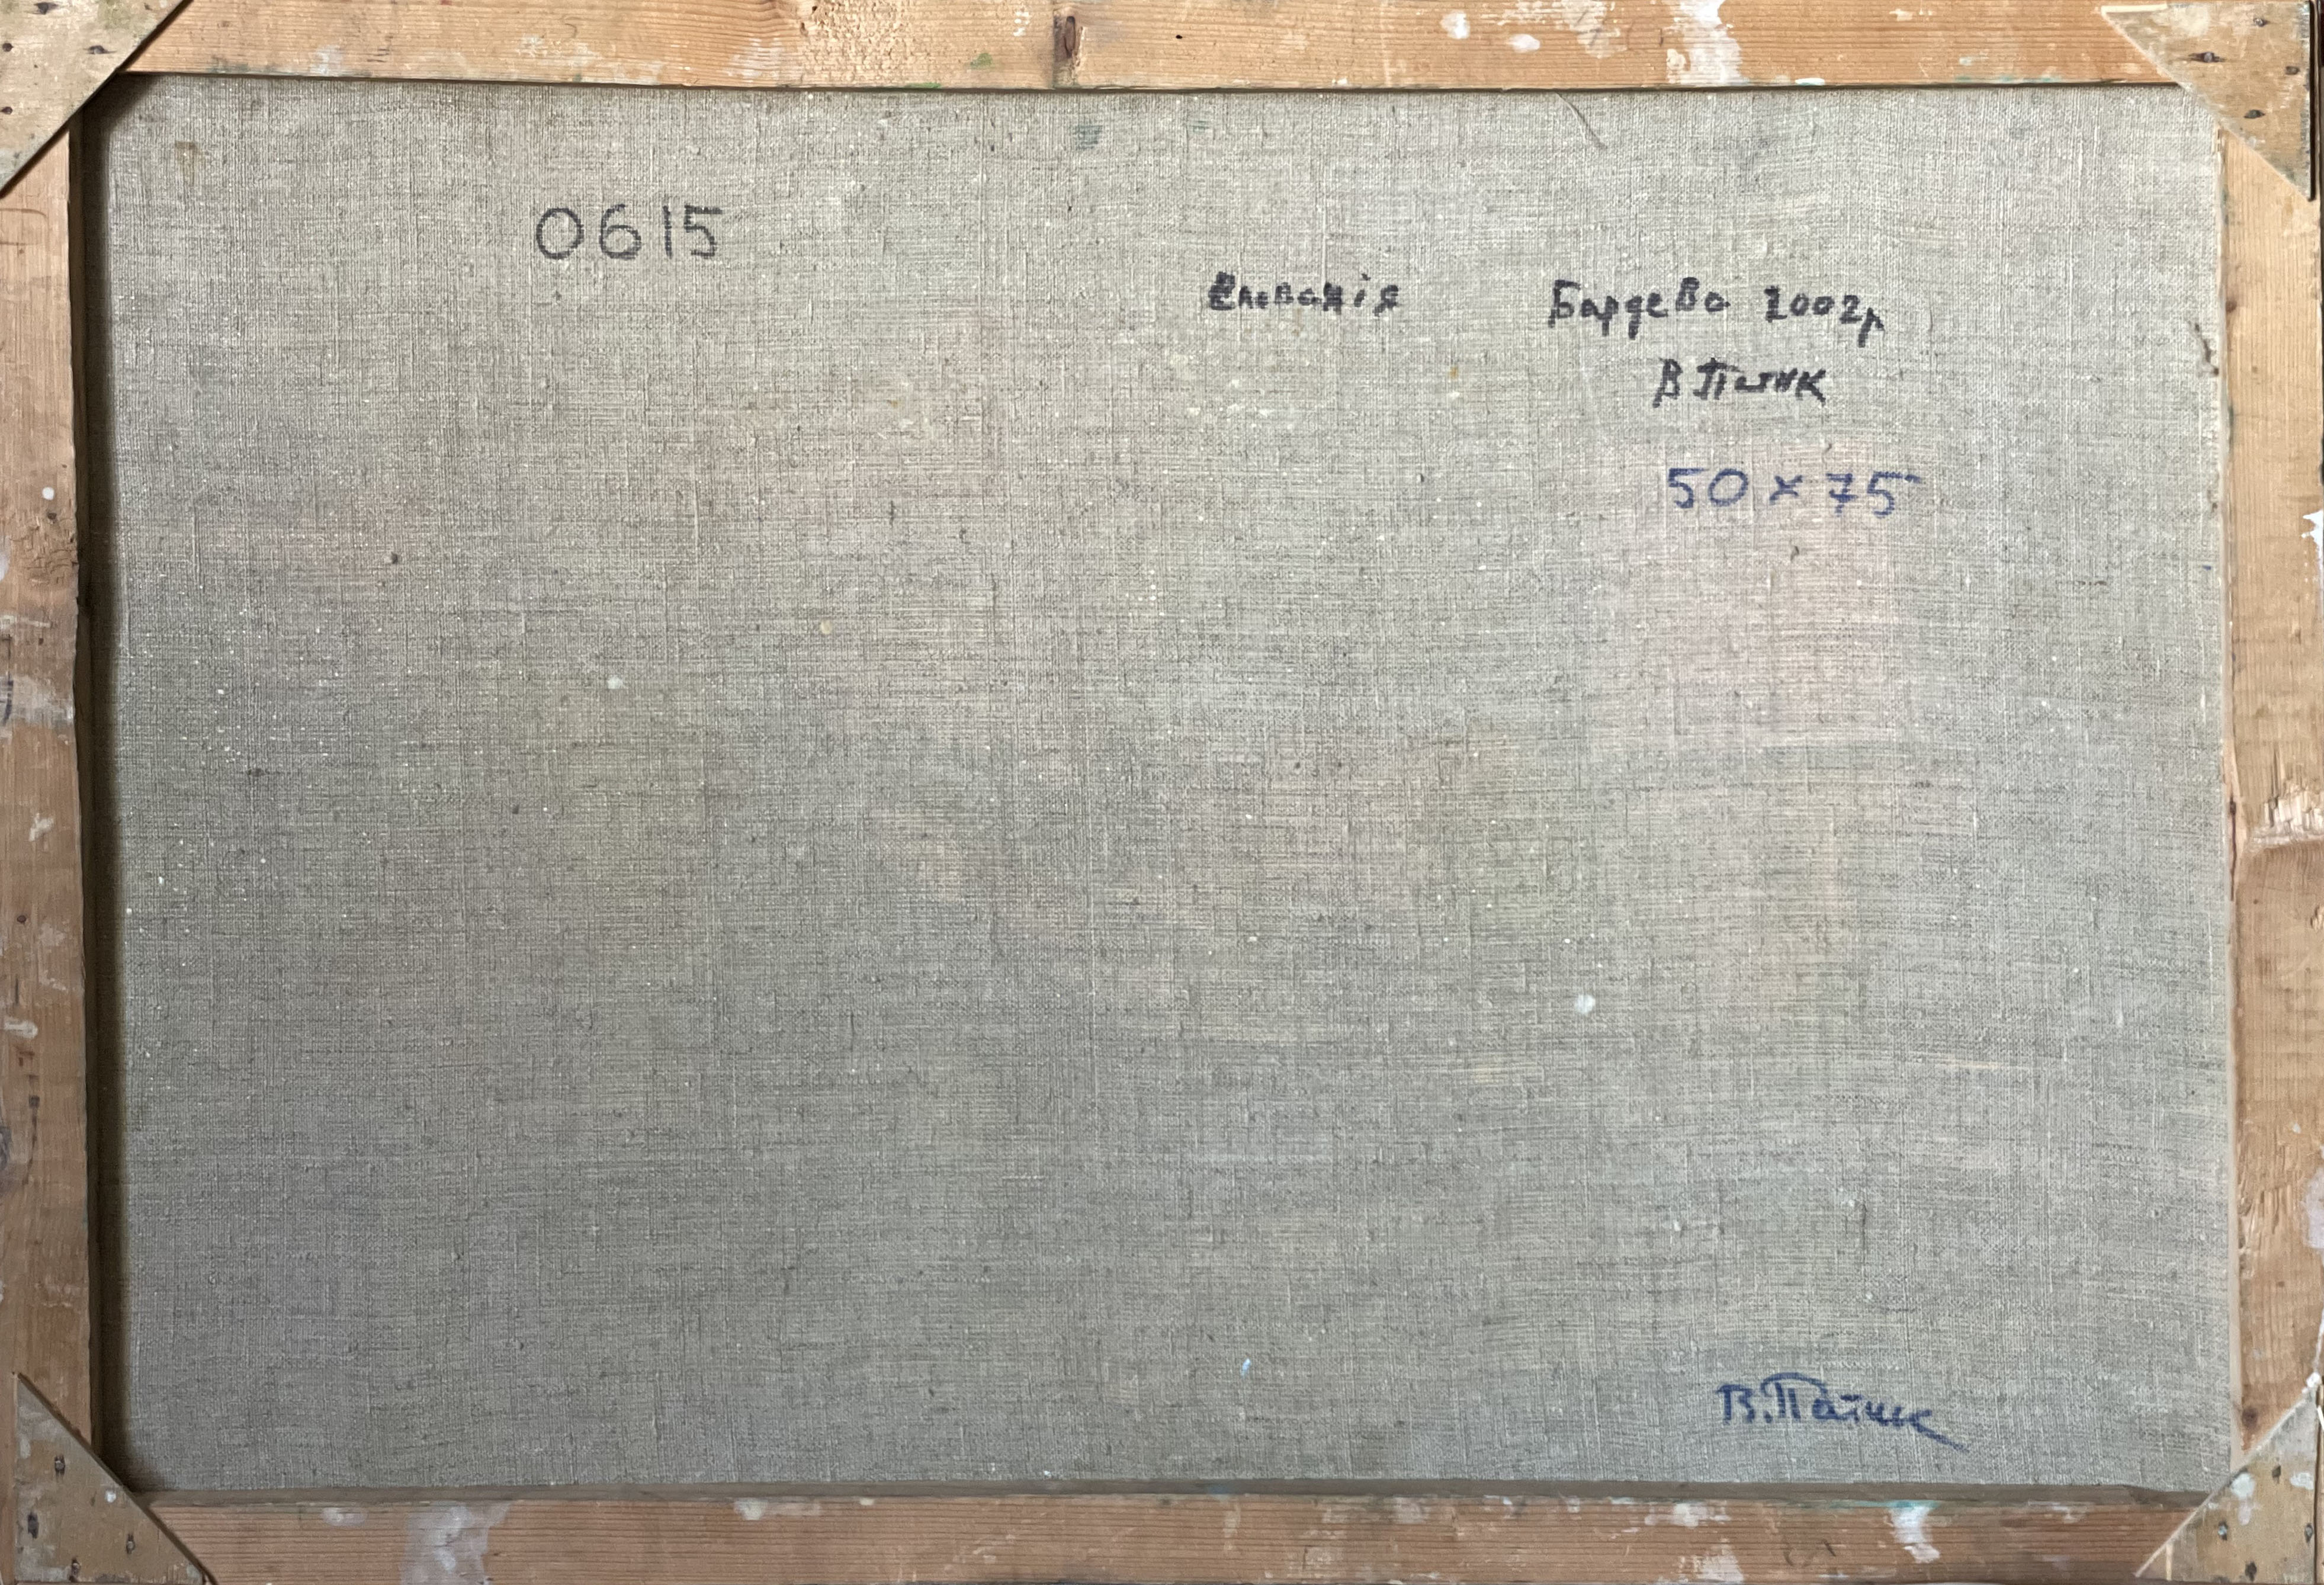 0615
Словакія Бардево 2002р
В Патик
50 x 75
В. Патик